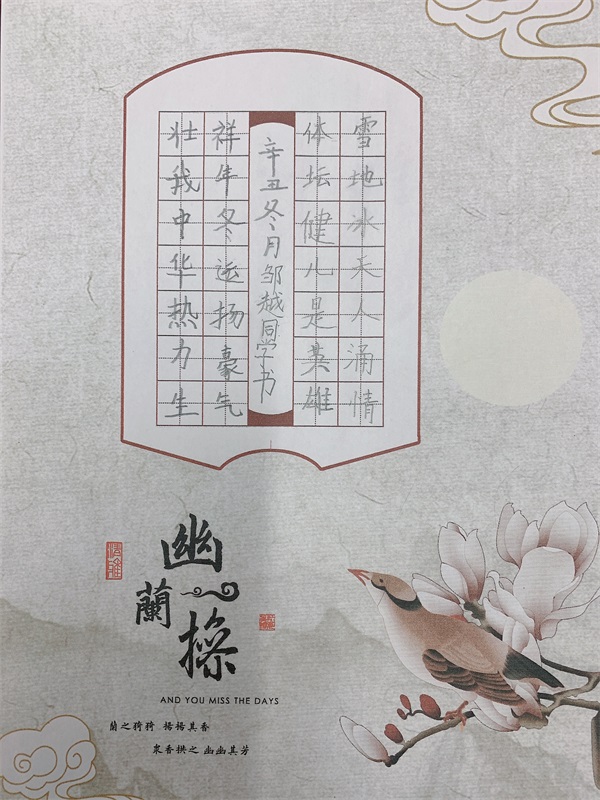 雪地冰天人涌情
体坛健儿是英雄
辛丑冬月邹越同学书
祥年冬运扬豪气
壮我中华热力生
幽蘭操
AND YOU MISS THE DAYS
蘭之猗猗 揚揚其香
衆香拱之 幽幽其芳